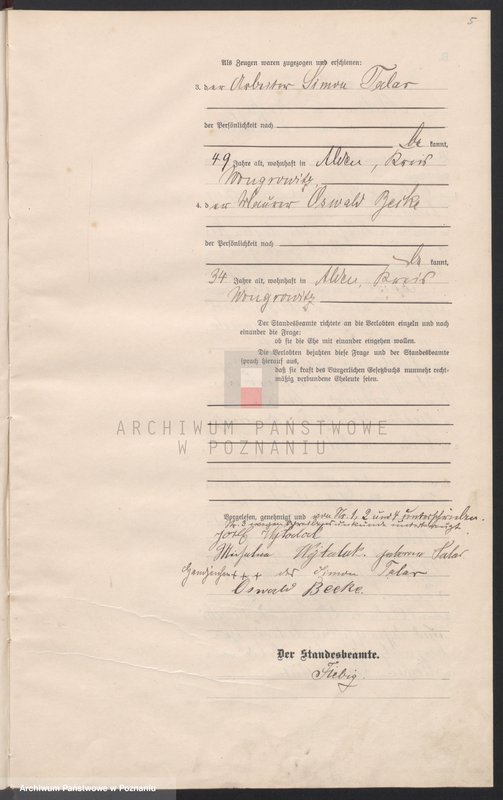 5
Als Zeugen waren zugezogen und erschienen:
3. der Arbeiter Simon Talar
der Persönlichkeit nach
be kannt,
49 Jahre alt, wohnhaft in Alden, Kreis
Wongrowitz
4. der Maurer Oswald Beeke
der Persönlichkeit nach
be kannt,
34 Jahre alt, wohnhaft in Alden, Kreis
Wongrowitz
Der Standesbeamte richtete an die Verlobten einzeln und nach
einander die Frage:
ob sie die Ehe mit einander eingehen wollen.
Die Verlobten bejahten diese Frage und der Standesbeamte
sprach hierauf aus,
daß sie kraft des Bürgerlichen Gesetzbuchs nunmehr recht-
mäßig verbundene Eheleute seien.
ARCHIWUM PAŃSTWOWE
W POZNANIU
Vorgelesen, genehmigt und von Nr. 1, 2 und 4 unterschrieben.
Nr. 3 wegen
Josef
Michalina geborene Talar
Handzeichen +++ des Simon Talar
Oswald Beeke.
Der Standesbeamte.
Fiebig.
Archiwum Państwowe w Poznaniu